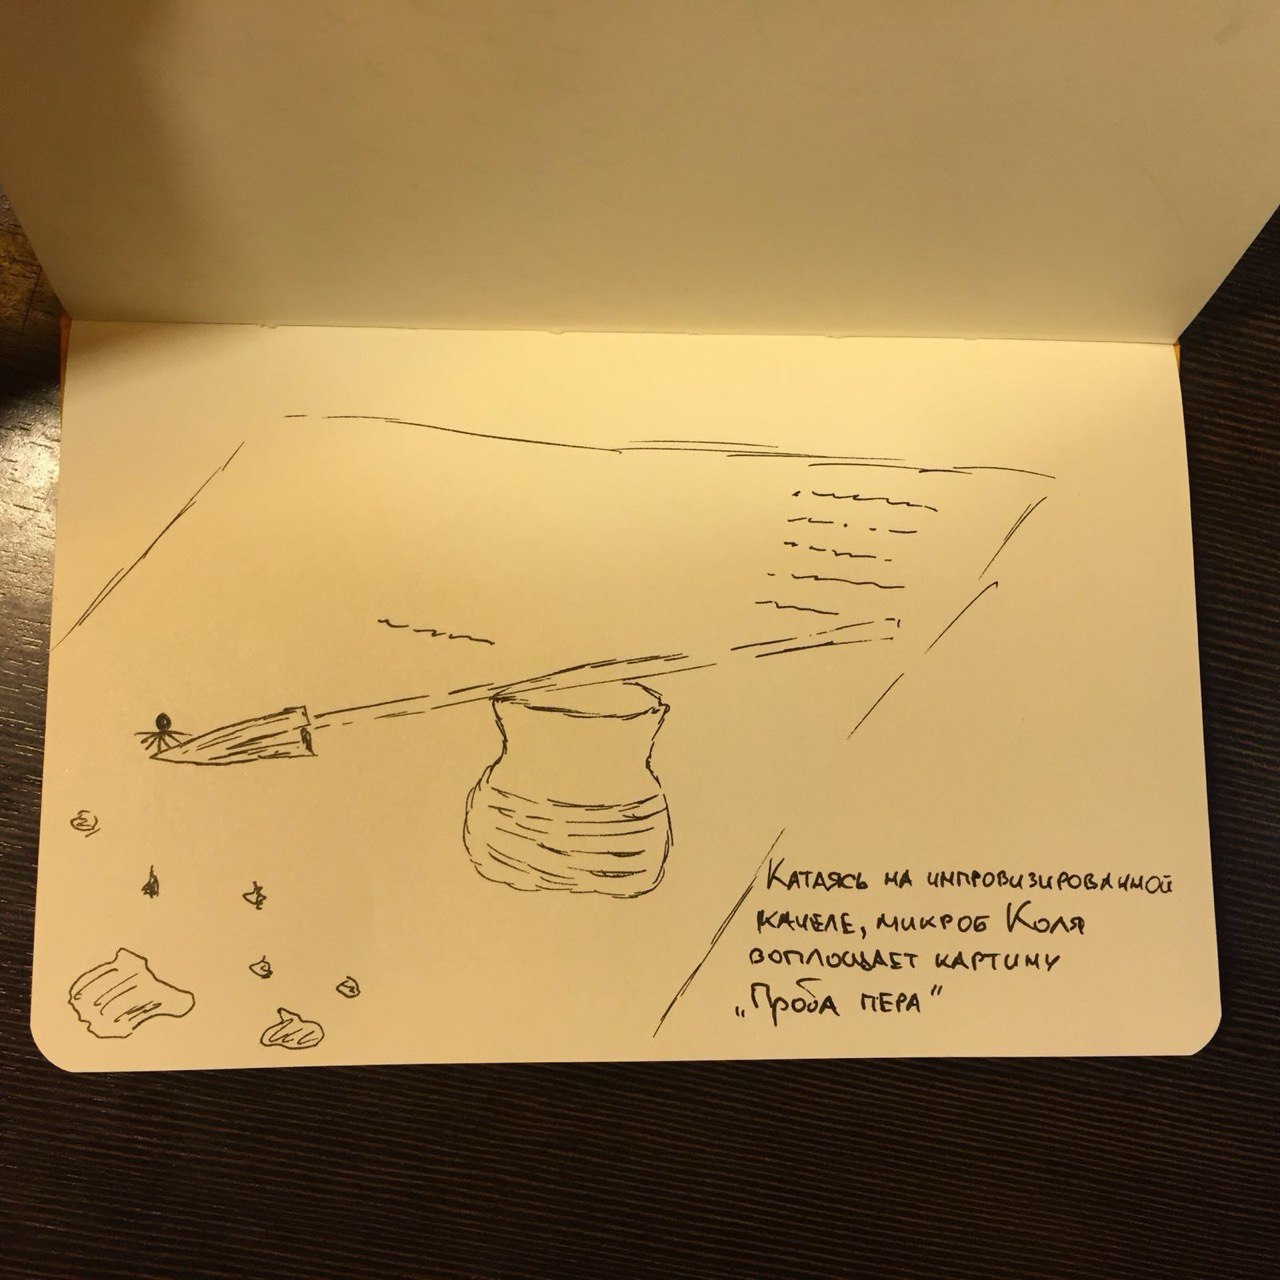 Катаясь на импровизированной
качеле, микроб Коля
воплощает картину
„Проба пера“